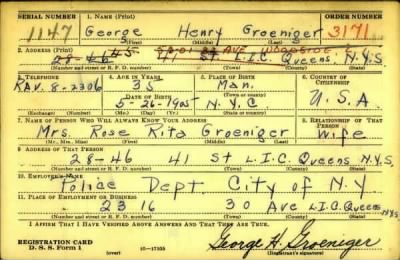 SERIAL NUMBER 1. NAME (Print) ORDER NUMBER
1147 George Henry Groeniger 3171
(First) (Middle) (Last)
2. ADDRESS (Print)
28-46 41 St L.I.C. Queens N.Y.S.
(Number and street or R. F. D. number) (Town) (County) (State)
3. TELEPHONE 4. AGE IN YEARS 5. PLACE OF BIRTH 6. COUNTRY OF CITIZENSHIP
RAV. 8-2306 35 Man.
DATE OF BIRTH
5-26-1905 N.Y.C. U.S.A.
(Exchange) (Number) (Mo.) (Day) (Yr.) (Town or county) (State or country)
7. NAME OF PERSON WHO WILL ALWAYS KNOW YOUR ADDRESS 8. RELATIONSHIP OF THAT PERSON
Mrs. Rose Rita Groeniger wife
(Mr., Mrs., Miss) (First) (Middle) (Last)
9. ADDRESS OF THAT PERSON
28-46 41 St L.I.C. Queens N.Y.S.
(Number and street or R. F. D. number) (Town) (County) (State)
10. EMPLOYER'S NAME
Police Dept. City of N.Y
11. PLACE OF EMPLOYMENT OR BUSINESS
23 16 30 Ave L.I.C. Queens N.Y.S
(Number and street or R. F. D. number) (Town) (County) (State)
I AFFIRM THAT I HAVE VERIFIED ABOVE ANSWERS AND THAT THEY ARE TRUE.
REGISTRATION CARD
D. S. S. Form 1 (over) George H. Groeniger
(Registrant's signature)